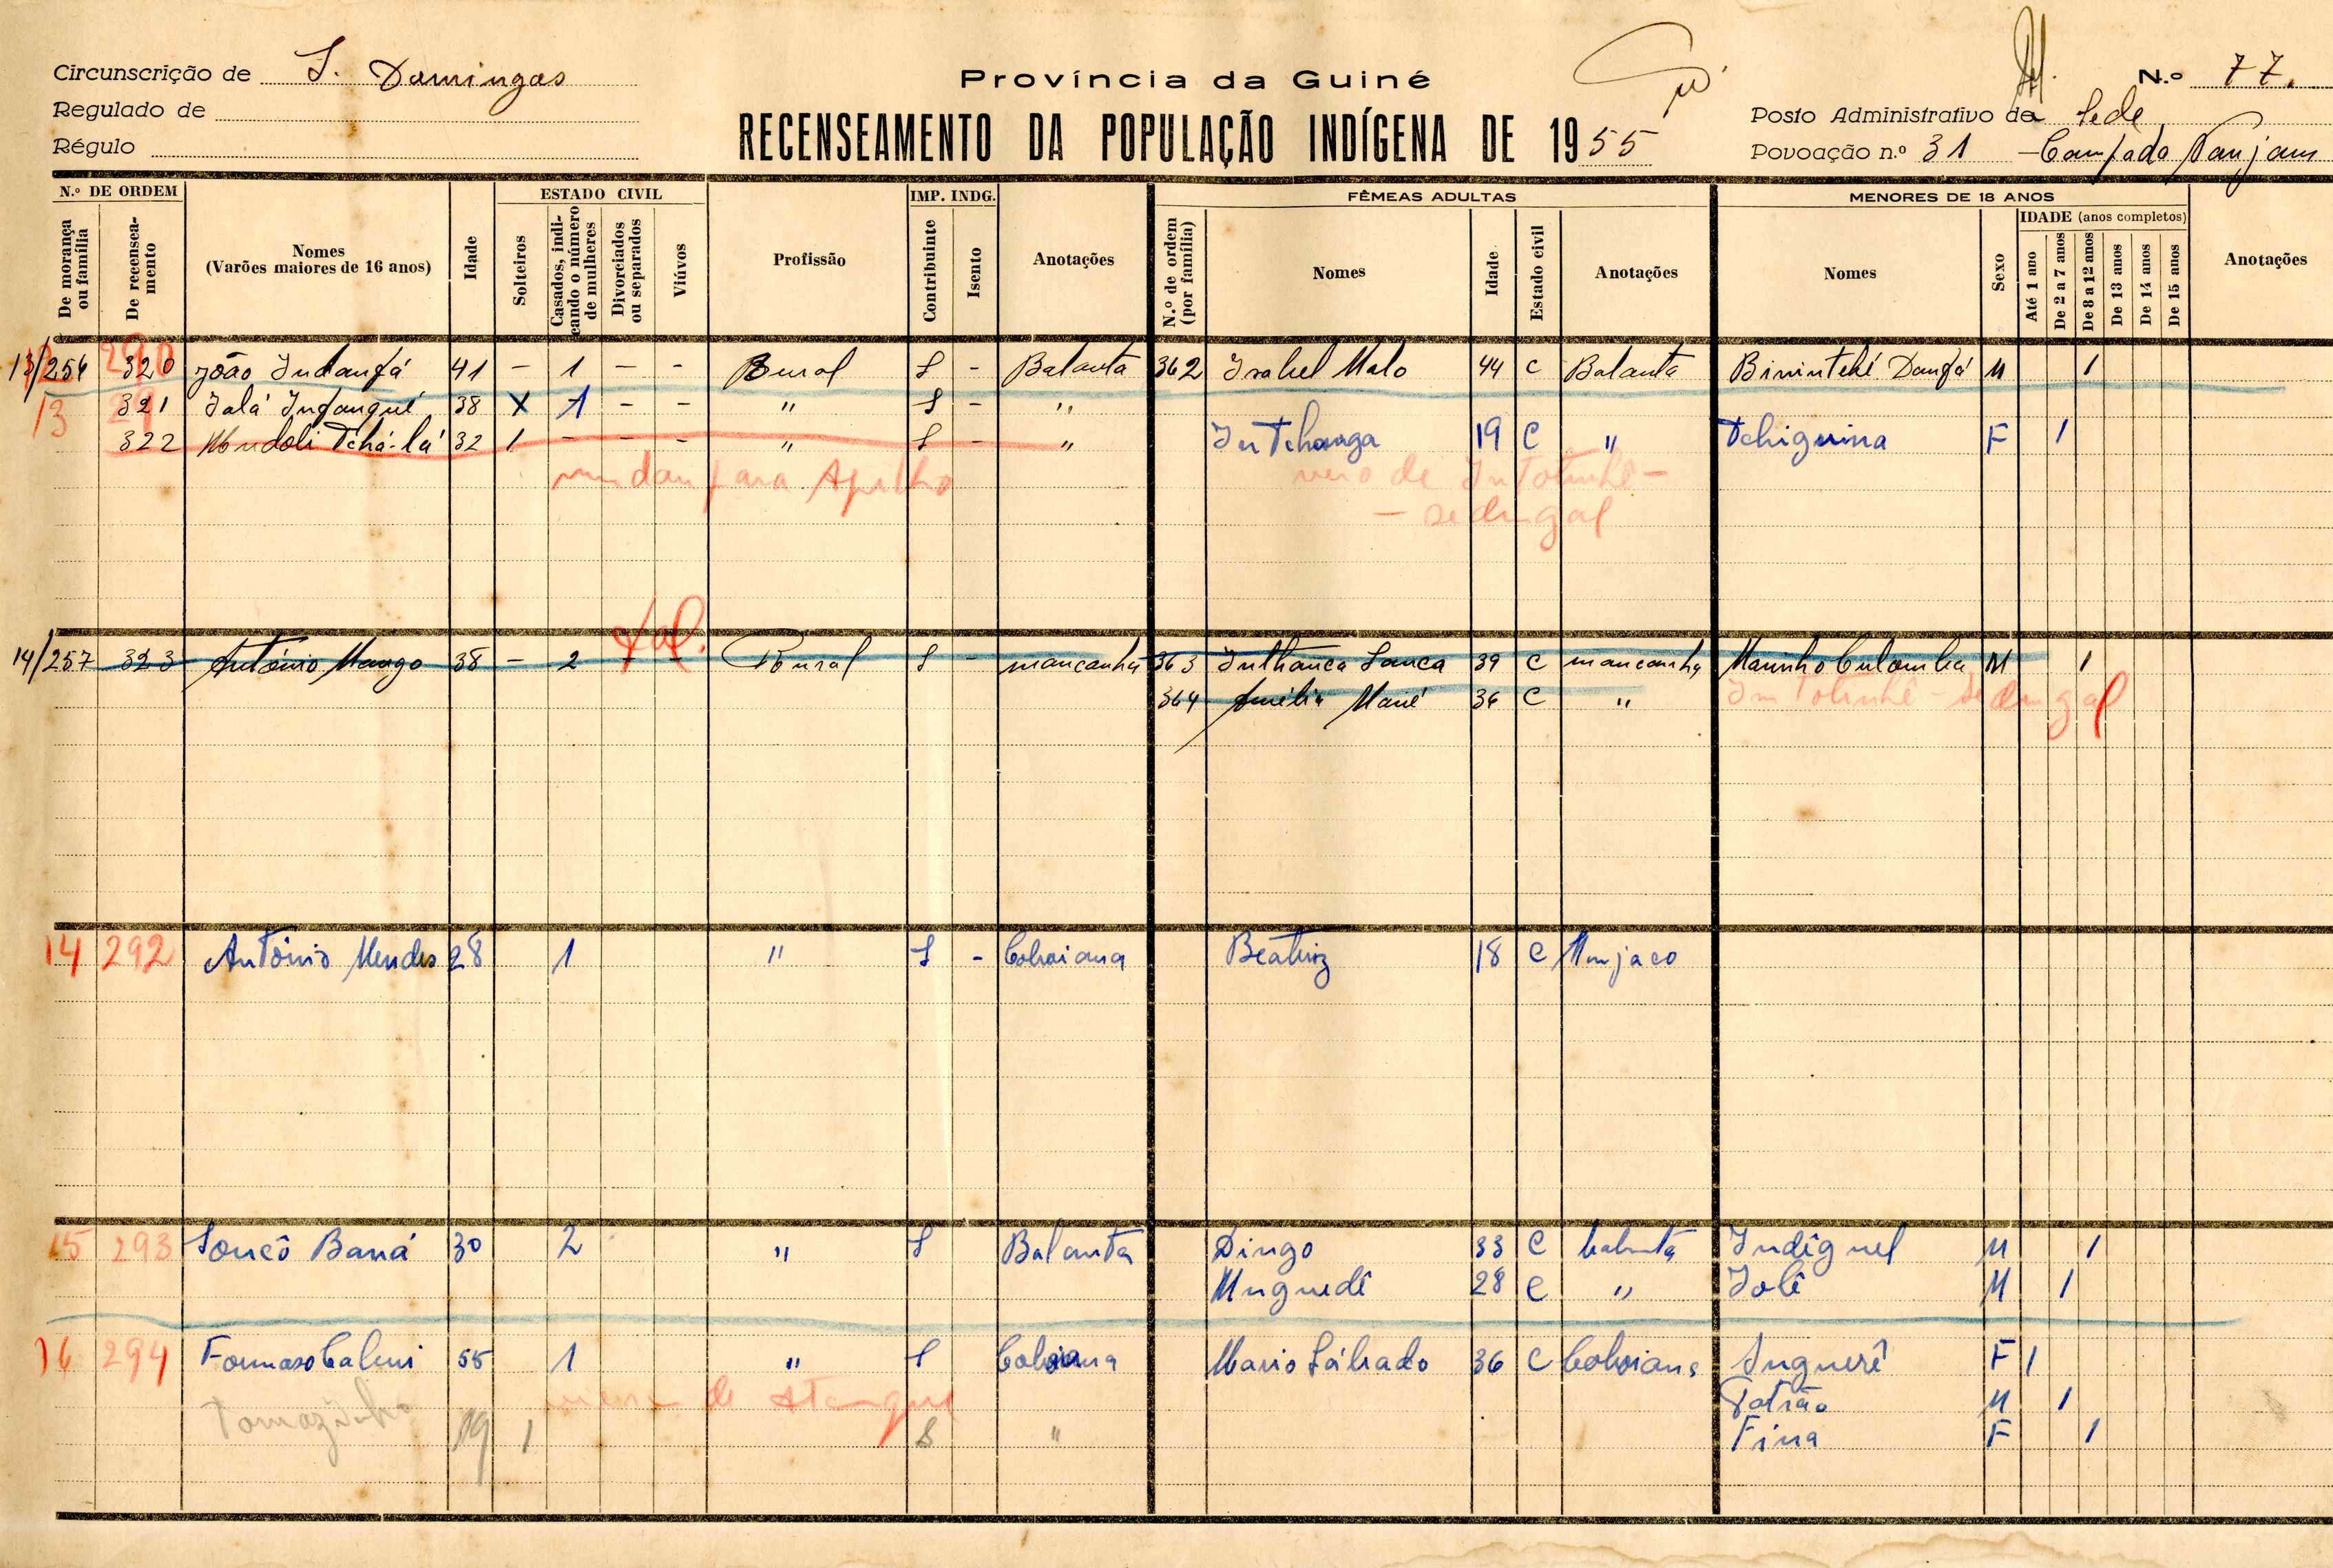 Circunscrição de S. Domingos
Regulado de
Régulo
Província da Guiné
RECENSEAMENTO DA POPULAÇÃO INDÍGENA DE 1955
N.º 77.
Posto Administrativo da Sede
Povoação n.º 31
N.º DE ORDEM
De morança ou família
De recenseamento
Nomes
(Varões maiores de 16 anos)
Idade
ESTADO CIVIL
Solteiros
Casados, indicando o número de mulheres
Divorciados ou separados
Viúvos
Profissão
IMP. INDG.
Contribuinte
Isento
Anotações
FÊMEAS ADULTAS
N.º de ordem (por família)
Nomes
Idade
Estado civil
Anotações
MENORES DE 18 ANOS
Nomes
Sexo
IDADE (anos completos)
Até 1 ano
De 2 a 7 anos
De 8 a 12 anos
De 13 anos
De 14 anos
De 15 anos
Anotações
290
13/256 320 João Indanfá 41 - 1 - - Rural S - Balanta 362 Isabel Malo 44 C Balanta Binintché Danfá M 1
13 291 321 Jalá Infangué 38 X 1 - - " S - "
322 Mondoli Tchá-lá 32 1 - - - " S - " In Tchanga 19 C " Tchiguina F 1
mudou para Apilho veio de In Totinhê -
- Sedengal
14/257 323 António Mango 38 - 2 - - Rural S - mancanha 363 Inthanca Sanca 39 C mancanha Marinho Culamba M 1
364 Amélia Mané 36 C " In Totinhê - Sedengal
14 292 António Mendes 28 1 " S - Coboiana Beatriz 18 C Manjaco
15 293 Soncô Baná 30 2 " S Balanta Dingo 33 C balanta Indignel M 1
Munguedê 28 C " Jolê M 1
16 294 Calemi 55 1 " S Coboiana Maria Sábado 36 C Coboiana Inguerê F 1
de Patrão M 1
Tomazinho 19 1 S " Fina F 1